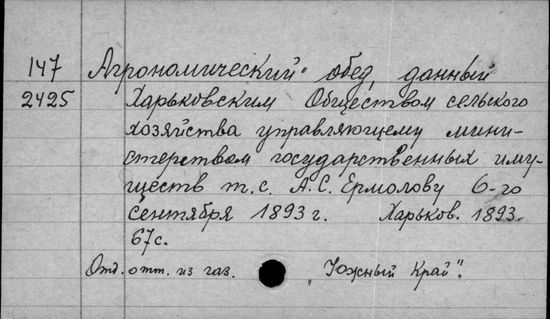 147 Агрономический обед, данный
2425 Харьковским Обществом сельского
хозяйства управляющему мини-
стерством государственных иму-
ществ т.с. А.С. Ермолову 6-го
сентября 1893 г. Харьков. 1893.
67 с.
Отд. отт. из газ. „Южный Край".